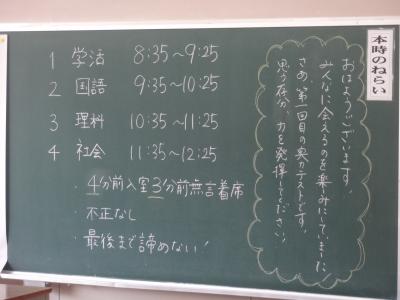 本時のねらい
おはようございます。
みんなに会えるのを楽みにしていました。
さあ、第一回目の実力テストです。
思う存分、力を発揮してください。
1 学活 8:35~9:25
2 国語 9:35~10:25
3 理科 10:35~11:25
4 社会 11:35~12:25
・4分前入室3分前無言着席
・不正なし
・最後まで諦めない!